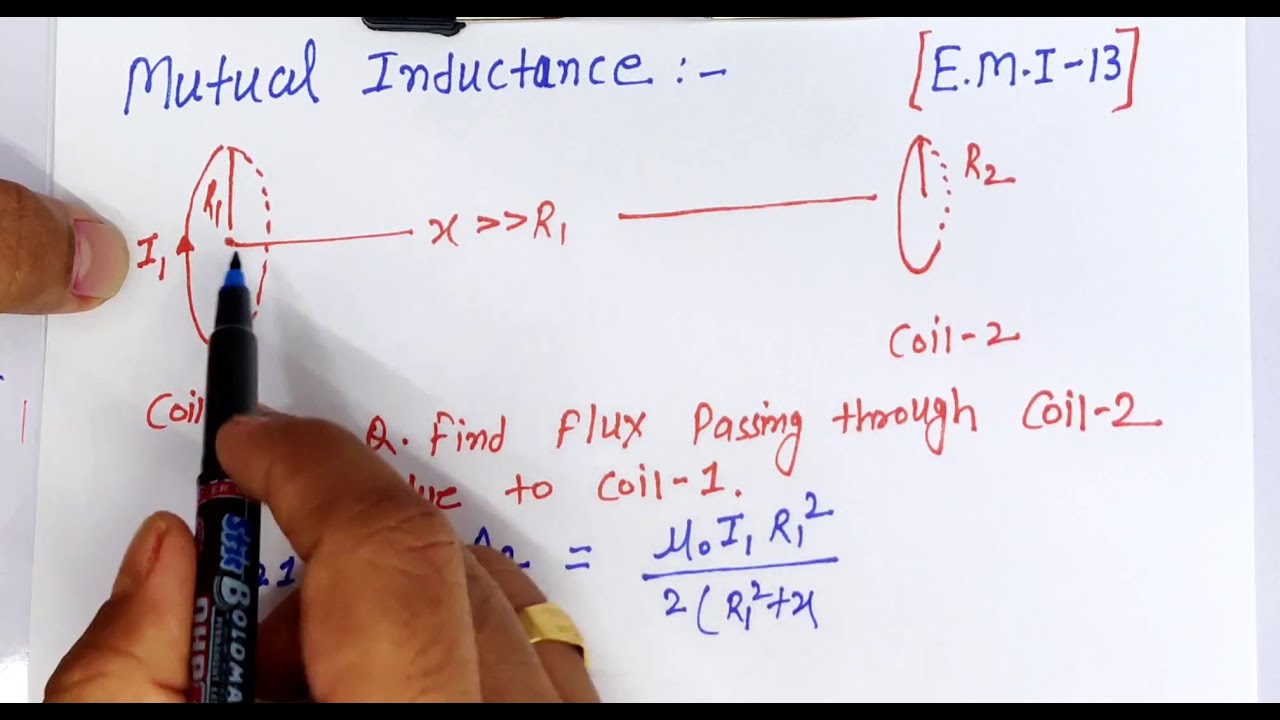 Mutual Inductance :- [E.M.I-13]
R₁
R₂
I₁
x >> R₁
Coil-2
Coil
Q. Find Flux Passing through Coil-2
to Coil-1.
21 = μ₀ I₁ R₁² / 2 (R₁² + x
BOLDMA